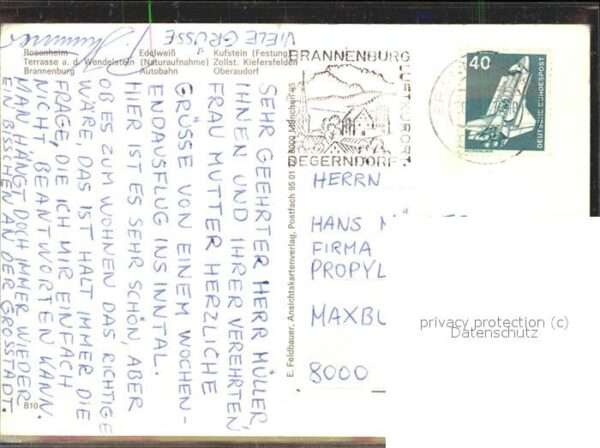 Rosenheim Edelweiß Kufstein (Festung)
Terrasse a. d. Wendelstein (Naturaufnahme) Zollst. Kiefersfelden
Brannenburg Autobahn Oberaudorf
SEHR GEEHRTER HERR MÜLLER,
IHNEN UND IHRER VEREHRTEN
FRAU MUTTER HERZLICHE
GRÜSSE VON EINEM WOCHEN-
ENDAUSFLUG INS INNTAL.
HIER IST ES SEHR SCHÖN, ABER
OB ES ZUM WOHNEN DAS RICHTIGE
WÄRE, DAS IST HALT IMMER DIE
FRAGE, DIE ICH MIR EINFACH
NICHT BEANTWORTEN KANN.
MAN HÄNGT DOCH IMMER WIEDER
EIN BISSCHEN AN DER GROSSTADT.
VIELE GRÜSSE
B10
E. Feldhauer, Ansichtskartenverlag, Postfach 95 01
BRANNENBURG
LUFTKURORT
DEGERNDORF
40
DEUTSCHE BUNDESPOST
HERRN
HANS
FIRMA
PROPYL
MAXBU
8000
privacy protection (c)
Datenschutz